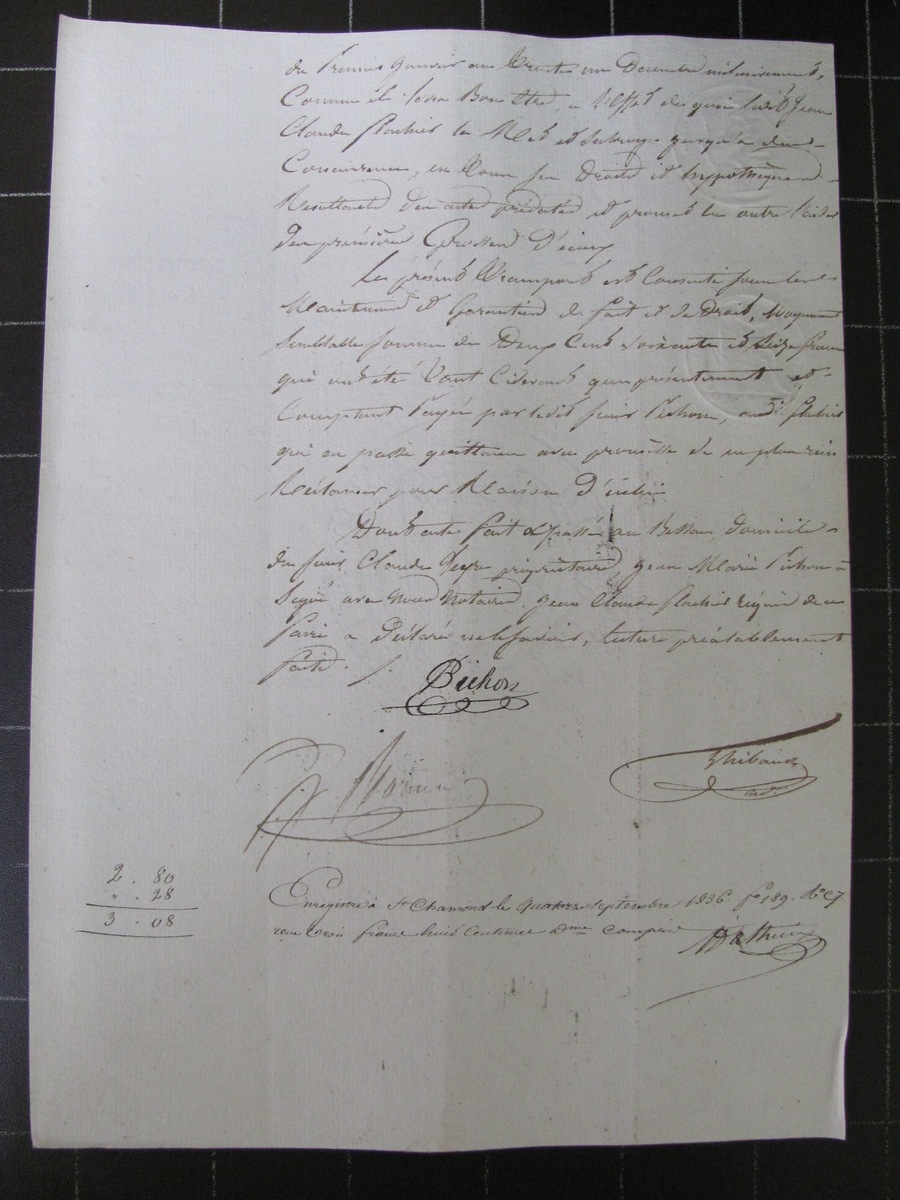 du Premier Janvier au Trente un Decembre
Comme il sera Bon Etre, a l'effet de quoi ledit Jean
Claude Flachier le Met et Subroge jusqu'à due
Concurrence, en tous ses Droits et hypothèques
Resultants des actes prédatés et promet
des premières Grosses
Le présent Transport est Consenti sous
Maintenue et Garantie de fait et de Droit, Moyennant
Semblable Somme de Deux Cent Soixante et Seize francs
qui ont été tant Cidevant que présentement et
Comptant Payés par ledit sieur Pichon, audit Flachier
qui en passe quittance avec promesse de ne plus rien
Réclamer pour Raison d'iceux
Dont acte fait & passé au Bessac domicile
du sieur Claude propriétaire, Jean Marie Pichon a
Signé avec Nous Notaire. Jean Claude Flachier requis de ce
faire a Déclaré ne le savoir, lecture préalablement
faite ./.
Pichon
Thibaud
notre
2 . 80
" . 28
3 . 08
Enregistré à St Chamond le Quatorze septembre 1836. fo 189. Ro C7.
reçu trois francs huit centimes dme compris